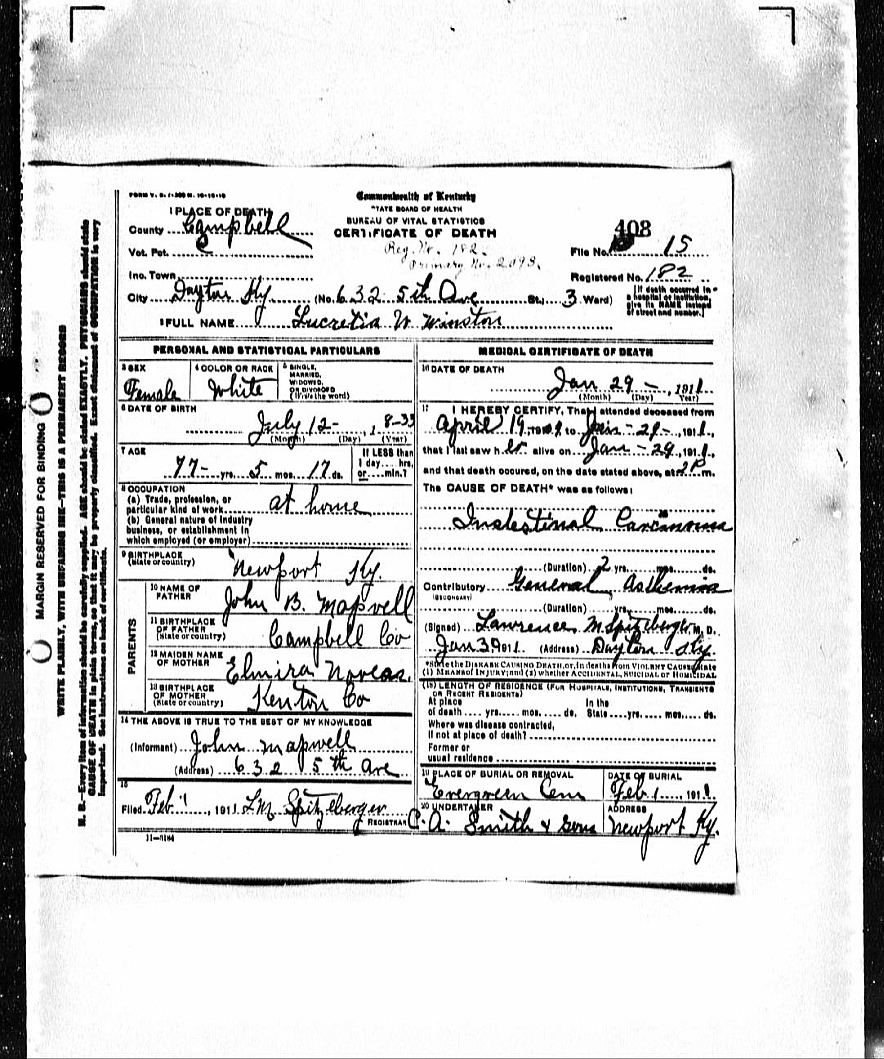 FORM V. S. 1-
Commonwealth of Kentucky
STATE BOARD OF HEALTH
BUREAU OF VITAL STATISTICS
CERTIFICATE OF DEATH
1 PLACE OF DEATH
County Campbell
Reg. No. 182
Primary No. 2093.
408
File No. 15
Vot. Pct.
Inc. Town
Registered No. 182
City Dayton Ky (No. 632 5th Ave St.; 3 Ward)
[If death occurred in a hospital or institution, give its NAME instead of street and number.]
2 FULL NAME Lucretia W Winston
PERSONAL AND STATISTICAL PARTICULARS
3 SEX
Female
4 COLOR OR RACE
White
5 SINGLE, MARRIED, WIDOWED, OR DIVORCED (Write the word)
6 DATE OF BIRTH
July 12- , 1833
(Month) (Day) (Year)
7 AGE
77- yrs. 5 mos. 17 ds.
If LESS than 1 day.... hrs. or.... min.?
8 OCCUPATION
(a) Trade, profession, or particular kind of work at home
(b) General nature of industry business, or establishment in which employed (or employer)
9 BIRTHPLACE
(State or country) Newport Ky.
PARENTS
10 NAME OF FATHER John B. Mapwell
11 BIRTHPLACE OF FATHER (State or country) Campbell Co
12 MAIDEN NAME OF MOTHER Elmira
13 BIRTHPLACE OF MOTHER (State or country) Kenton Co
14 THE ABOVE IS TRUE TO THE BEST OF MY KNOWLEDGE
(Informant) John Mapwell
(Address) 632 5th Ave
15
Filed Feb 1, 1911 L.M. Spitzberger
REGISTRAR
11-3184
MEDICAL CERTIFICATE OF DEATH
16 DATE OF DEATH
Jan 29 - , 1911
(Month) (Day) Year)
17 I HEREBY CERTIFY, That I attended deceased from
April 19 to Jan - 29 - , 1911,
that I last saw her alive on Jan - 29, 1911,
and that death occured, on the date stated above, at 2 P m.
The CAUSE OF DEATH* was as follows:
Inslestinal Carcinoma
(Duration) 2 yrs. mos. ds.
Contributory General Asthenia
(SECONDARY)
(Duration) yrs. mos. ds.
(Signed) Lawrence M Spitzberger, M. D.
Jan 30 1911 (Address) Dayton Ky.
*State the DISEASE CAUSING DEATH, or, in deaths from VIOLENT CAUSES, state
(1) MEANS of INJURY; and (2) whether ACCIDENTAL, SUICIDAL or HOMICIDAL
(18) LENGTH OF RESIDENCE (FOR HOSPITALS, INSTITUTIONS, TRANSIENTS OR RECENT RESIDENTS)
At place of death .... yrs. .... mos. .... ds. In the State .... yrs. .... mos. .... ds.
Where was disease contracted, If not at place of death?
Former or usual residence
19 PLACE OF BURIAL OR REMOVAL
Evergreen Cem
DATE OF BURIAL
Feb 1 , 1911
20 UNDERTAKER
C. A. Smith & Sons
ADDRESS
Newport Ky.
MARGIN RESERVED FOR BINDING
WRITE PLAINLY, WITH UNFADING INK—THIS IS A PERMANENT RECORD
N. B.—Every item of information should be carefully supplied. AGE should be stated EXACTLY. PHYSICIANS should state
CAUSE OF DEATH in plain terms, so that it may be properly classified. Exact statement of OCCUPATION is very
important. See instructions on back of certificate.